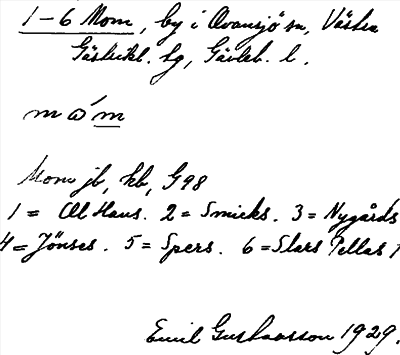 1-6 Mom, by i Ovansjö sn, Västra
Gästrikl. hg, Gävleb. l.
Mom jb, kb, G98
1 = Ol Hans. 2 = Smicks. 3 = Nygårds
4 = Jönses. 5 = Spers. 6 = Slars Pellas
Emil Gustavsson 1929.